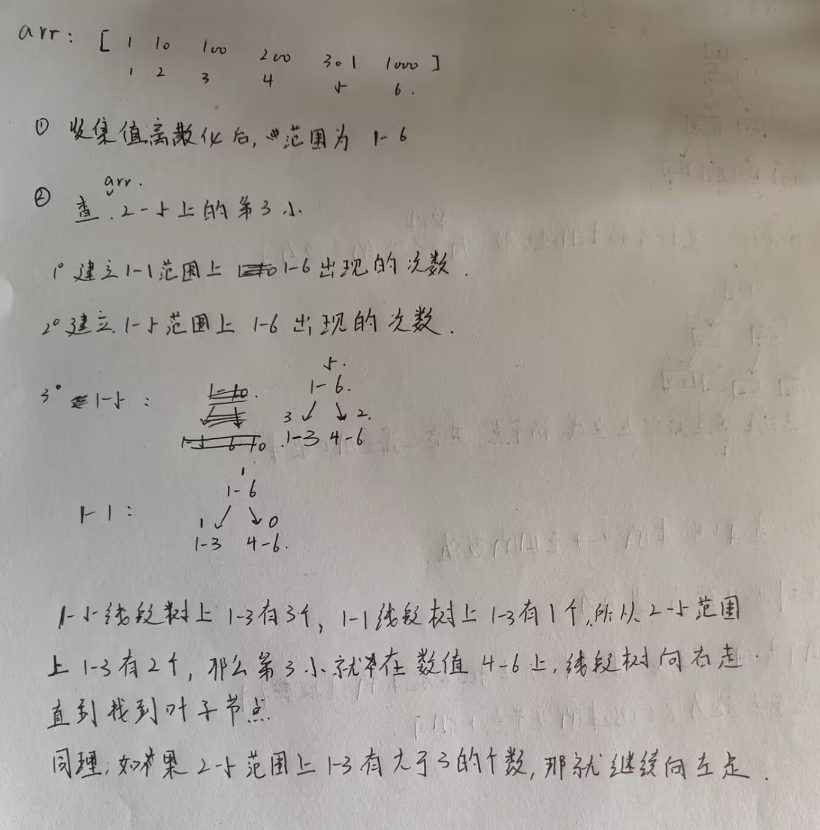 arr: [ 1 10 100 200 301 1000 ]
1 2 3 4 5 6.
① 收集值离散化后, 范围为 1-6
arr.
② 查 2-5上的第3小
1° 建立1-1范围上 1-6出现的次数.
2° 建立1-5范围上 1-6出现的次数.
5.
3° 1-5: 1-6.
3 ↙ ↘ 2.
1-3 4-6
1
1-6
1-1: 1 ↙ ↘ 0
1-3 4-6.
1-5线段树上1-3有3个, 1-1线段树上1-3有1个,所以2-5范围
上1-3有2个, 那么第3小就在数值4-6上,线段树向右走.
直到找到叶子节点
同理,如果2-5范围上1-3有大于3的个数,那就继续向左走.